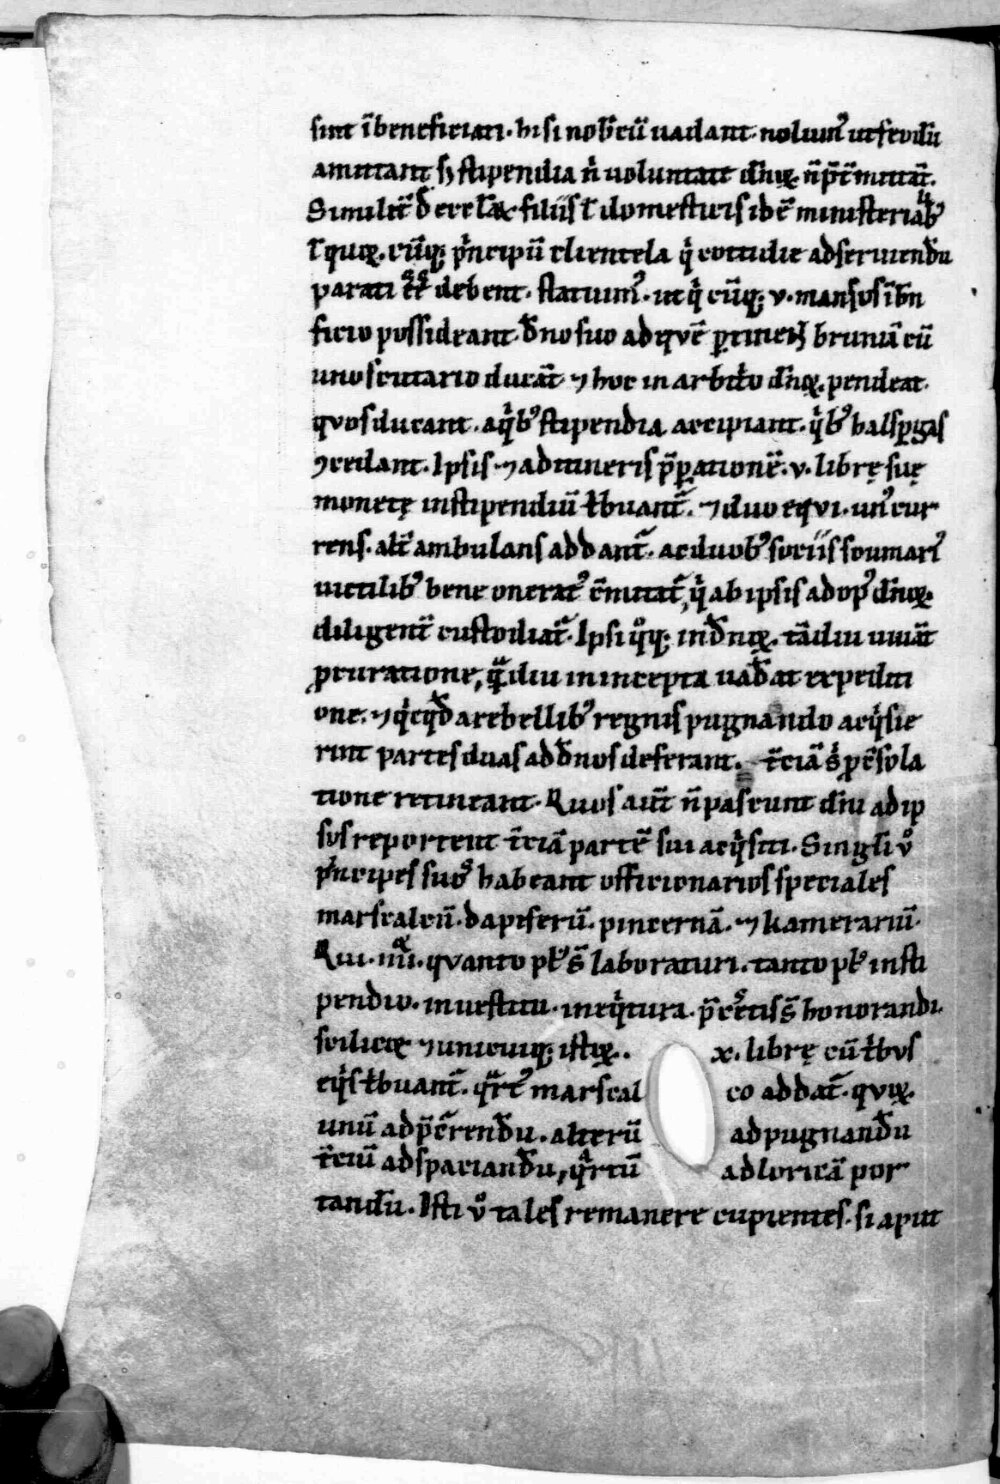 sint ībeneficiati· hi si nob̄cū uadant· nolum᷒ ut feodū
amittant s; stipendia ñ uoluntate dñiꝝ· ñ p̄t̄mittāt·
Similit̄ đ eccłaꝝ filiis ł domesticis id ē ministerialib᷒
ł quoꝝ·cūq; p̄ncipū clientela qͥ cottidie ad seruiendū
parati ēē debent· statuim᷒· ut qͥcūq; v· mansos ī bn̄
ficio possideant· d̄no suo ad quē ꝑtinent bruniā cū
uno scutario ducāt· ⁊ hoc in arbit̄o dn̄oꝝ· pendeat·
quos ducant· a qͥb᷒ stipendia accipiant· qͥb᷒ halsꝑgas
ↄcedant· Ipsis ⁊ ad itineris p̄ꝑationē· v· librę suę
monetę in stipendiū t̄buant᷑· ⁊ duo equi· un᷒ cur
rens· alt̄ ambulans addant᷑· ac duob᷒ sociis soumari᷒
uictilib᷒ bene onerat᷒ c̄mittat᷑, qͥ ab ipsis ad op᷒ dn̄oꝝ·
diligent̄ custodiat᷑· Ipsi qͦq; in d̄noꝝ· tādiu uiuāt
ꝓcuratione, qͣmdiu in incepta uad̄at expediti
one· ⁊ qͥcqͥd a rebellib᷒ regnis pugnando acqͥsie
rint partes duas ad d̄nos deferant· t̄ciā s; ꝑ c̄sola
tione retineant· Quos aut̄ ñ pascunt dn̄i ad ip
sos reportent t̄ciā partē sui acqͥsiti· Singƚi vͦ
p̄ncipes suos habeant officionarios speciales
marscalcū· dapiferū· pincernā· ⁊ kamerariū·
Qui ·iiiiͦʳ· quanto pł᷒ s̄ laboraturi· tanto pł᷒ in sti
pendio· in uestitu· in eqͥtura· p̄ cēt̄is s̄ honorandi·
scilicet ⁊ unicuiq; istoꝝ·· x· librę cū t̄bus
eqͥs t̄buant᷑· qͣrt᷒ marscal co addat᷑· quoꝝ·
unū ad p̄c̄rendū· alterū ad pugnandū
t̄ciū ad spaciandū, qͣrtū ad loricā por
tandū· Isti vͦ tales remanere cupientes· si aput